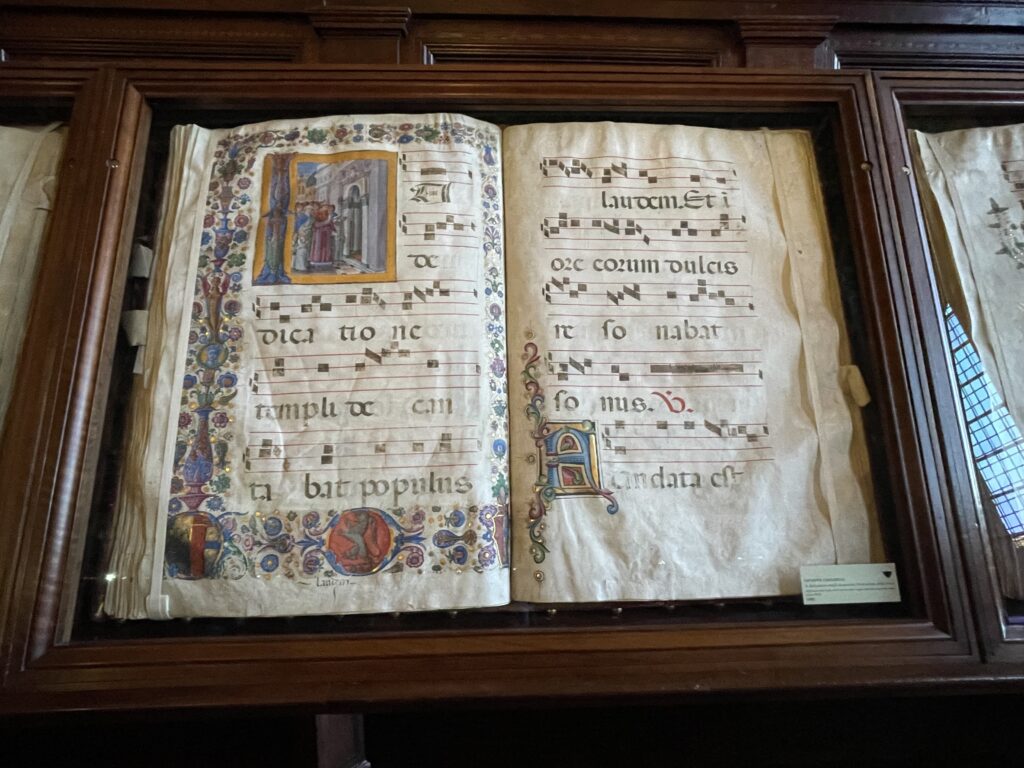 N
de
dica tio ne
templi de can
ta bat populus
laudem. Et i
ore eorum dulcis
re so nabat
so nus. V.
Fundata est